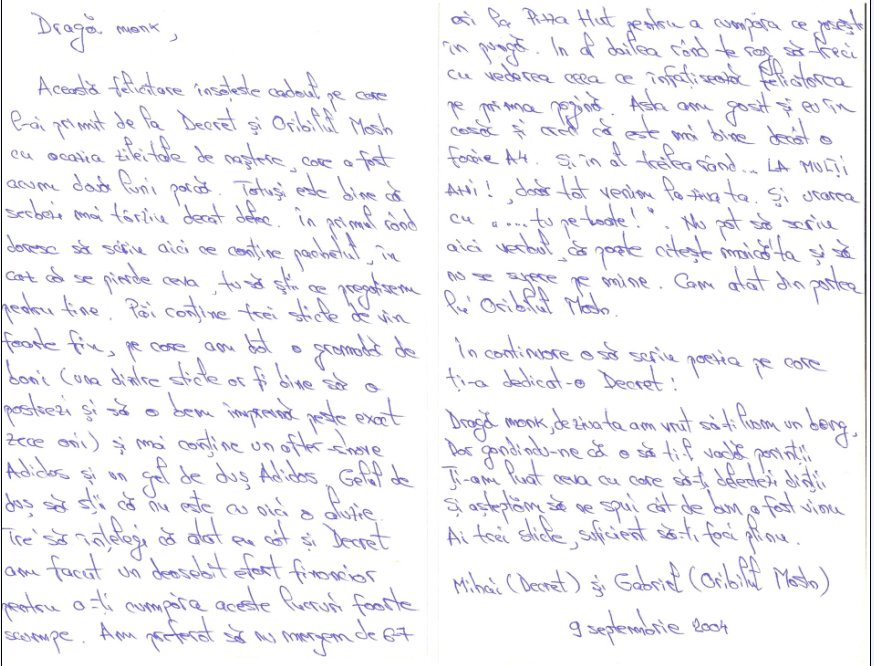 Dragă monk,
Această felicitare însoțește cadoul pe care
l-ai primit de la Decret și Oribilul Mosh
cu ocazia zilei tale de naștere, care a fost
acum două luni parcă. Totuși este bine că
serbezi mai târziu decât deloc. În primul rând
doresc să scriu aici ce conține pachetul, în
caz că se pierde ceva, tu să știi ce pregătisem
pentru tine. Păi conține trei sticle de vin
foarte fin, pe care am dat o grămadă de
bani (una dintre sticle ar fi bine să o
păstrezi și să o bem împreună peste exact
zece ani) și mai conține un after-shave
Adidas și un gel de duș Adidas. Gelul de
duș să știi că nu este cu nici o aluzie.
Tre' să înțelegi că atât eu cât și Decret
am făcut un deosebit efort financiar
pentru a-ți cumpăra aceste lucruri foarte
scumpe. Am preferat să nu mergem de 6-7
ori la Pizza Hut pentru a cumpăra ce găsești
în pungă. În al doilea rând te rog să treci
cu vederea ceea ce înfățișează felicitarea
pe prima pagină. Asta am găsit și eu în
casă și cred că este mai bine decât o
foaie A4. Și în al treilea rând... LA MULȚI
ANI!, doar tot venim la ziua ta. Și urarea
cu "....tu pe toate!". Nu pot să scriu
aici verbul, că poate citește maică-ta și să
nu se supere pe mine. Cam atât din partea
lui Oribilul Mosh.
În continuare o să scriu poezia pe care
ți-a dedicat-o Decret:
Dragă monk, de ziua ta am vrut să-ți luăm un bong,
Dar gândindu-ne că o să ți-l vadă părinții
Ți-am luat ceva cu care să-ți delectezi dinții
Și așteptăm să ne spui cât de bun a fost vinu
Ai trei sticle, suficient să-ți faci plinu.
Mihai (Decret) și Gabriel (Oribilul Mosh)
9 septembrie 2004